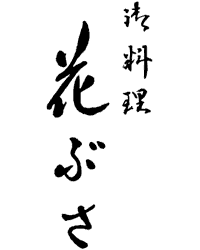 御料理
花ぶさ